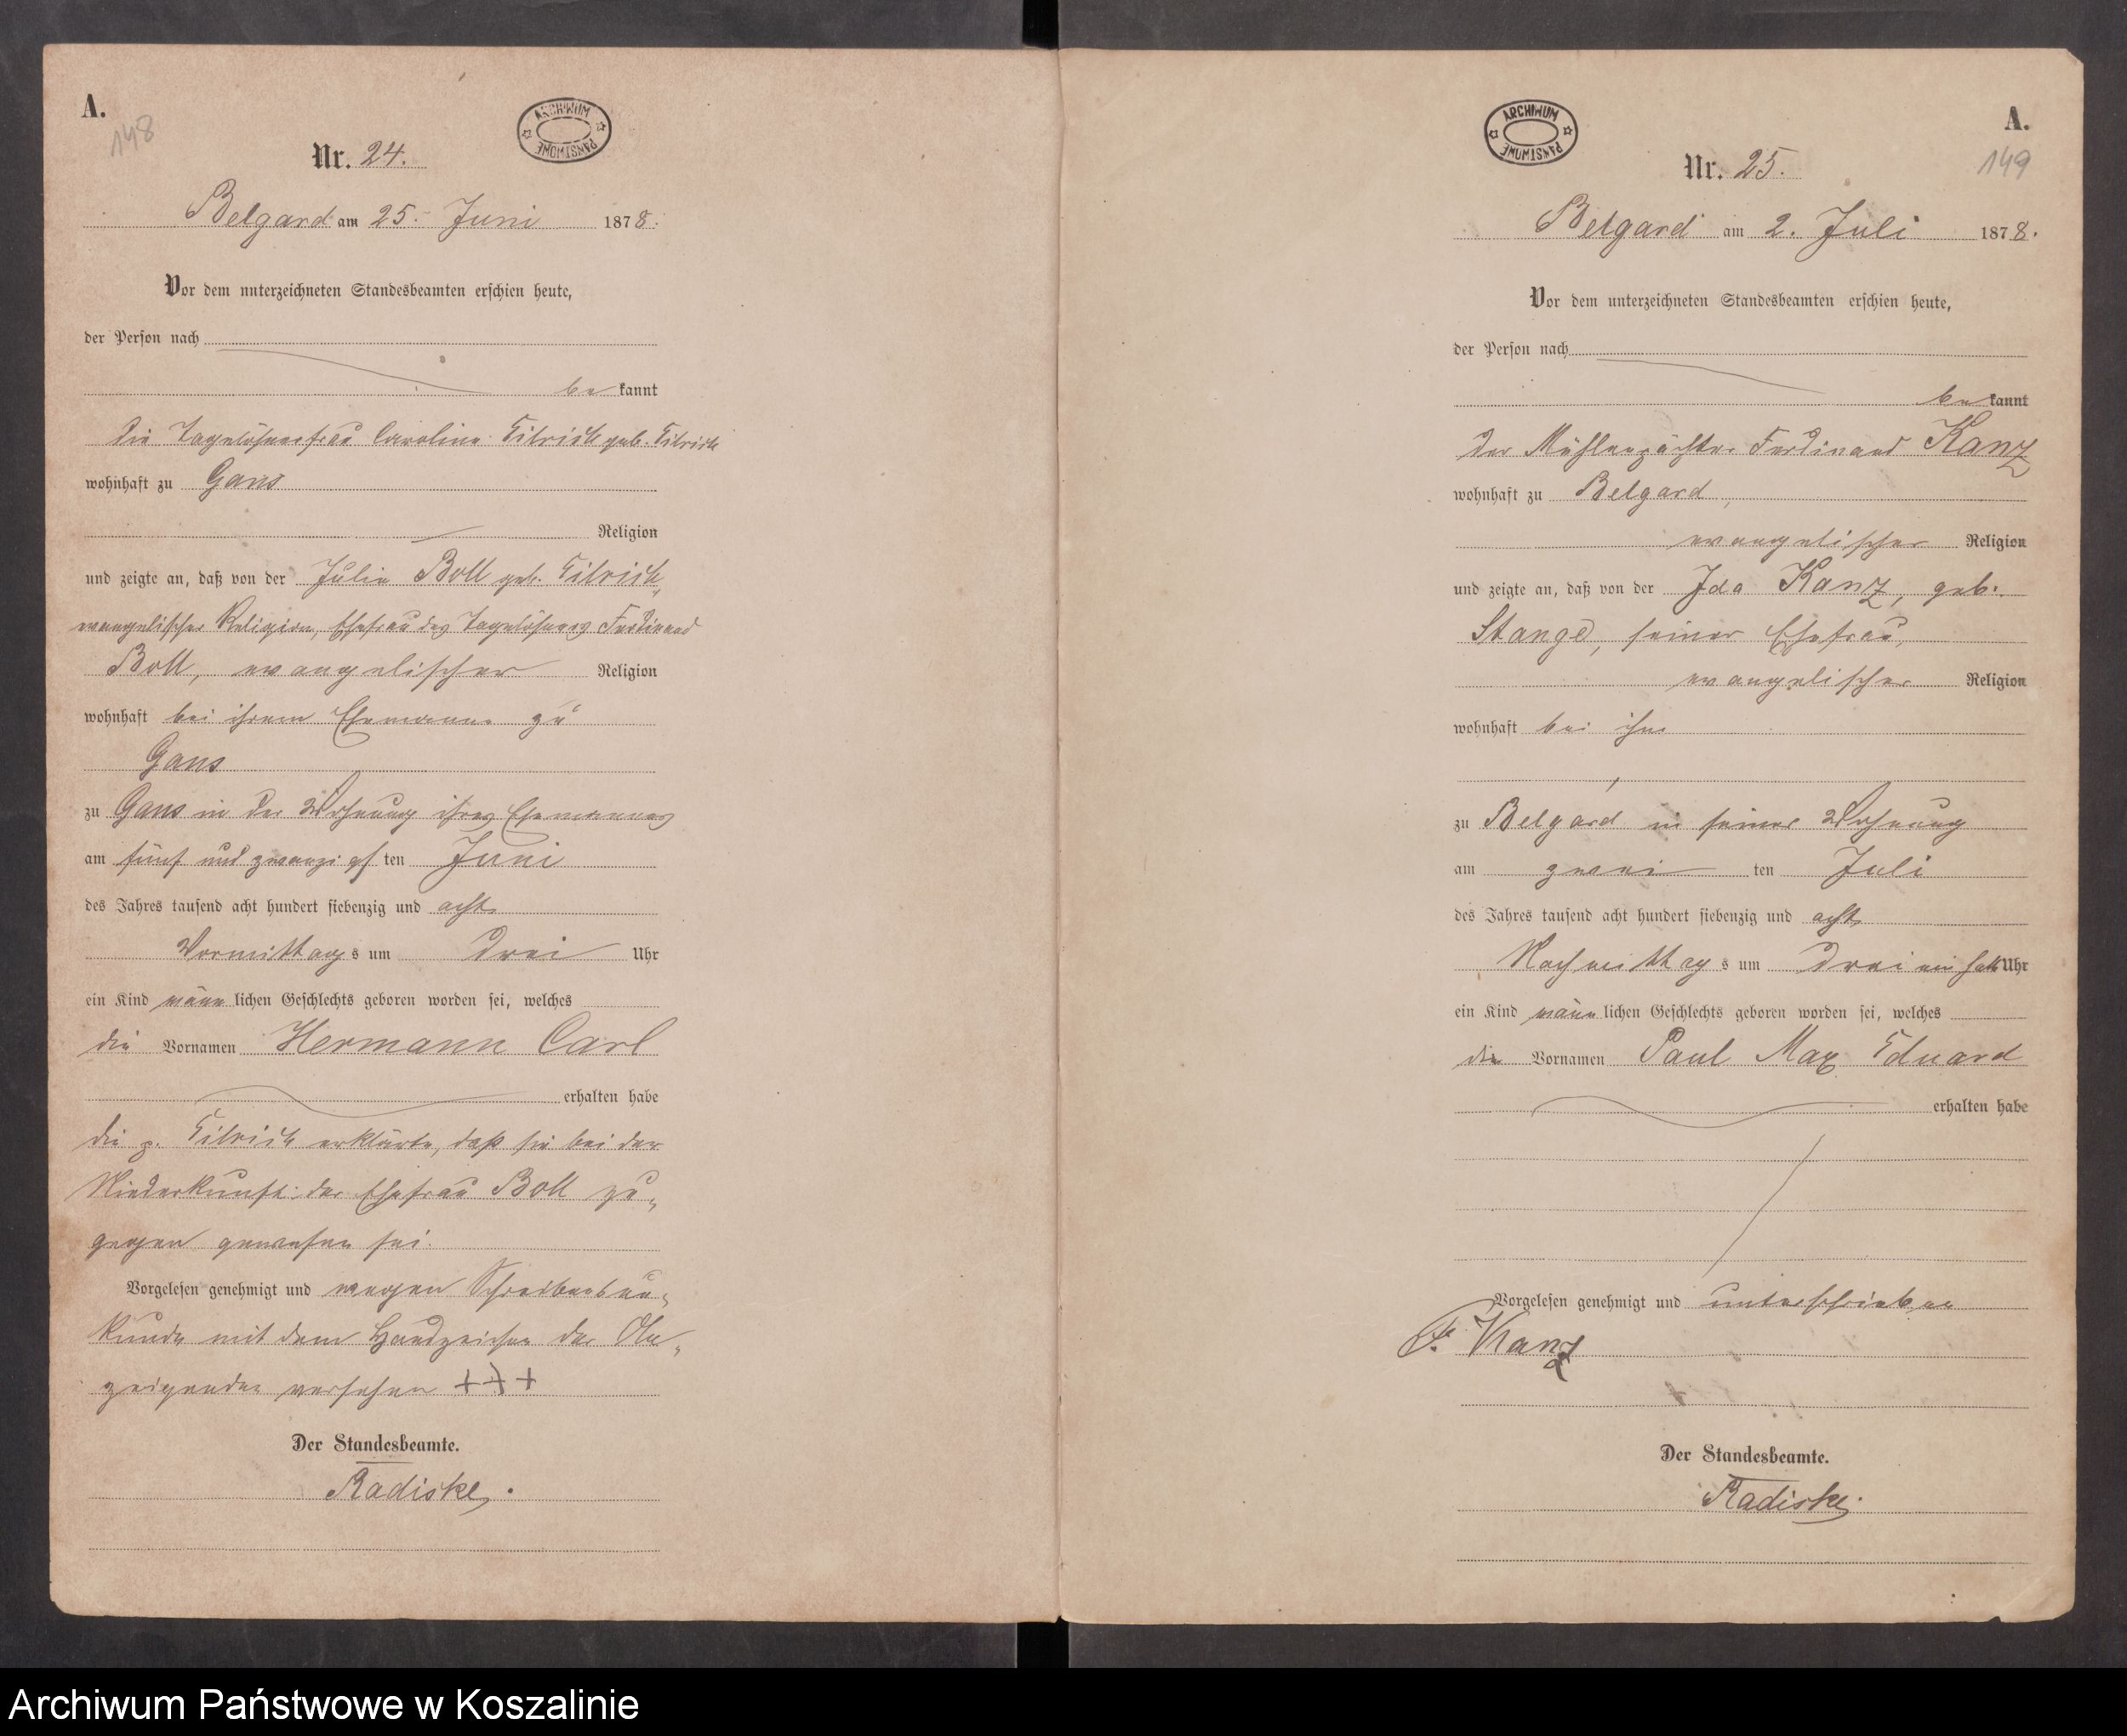 A.
148
ARCHIWUM PAŃSTWOWE
Nr. 24.
Belgard am 25. Juni 1878.
Vor dem unterzeichneten Standesbeamten erschien heute,
der Person nach
be kannt
die Tagelöhnerfrau Caroline geb.
wohnhaft zu Gans
Religion
und zeigte an, daß von der Julie Boll geb.
evangelischer Religion, Ehefrau des Tagelöhners Ferdinand
Boll, evangelischer Religion
wohnhaft bei ihrem Ehemanne zu
Gans
zu Gans in der Wohnung ihres Ehemannes
am fünf und zwanzigs ten Juni
des Jahres tausend acht hundert siebenzig und acht
Vormittag s um drei Uhr
ein Kind männ lichen Geschlechts geboren worden sei, welches
die Vornamen Hermann Carl
erhalten habe
die p. erklärte, daß sie bei der
Niederkunft der Ehefrau Boll zu-
gegen gewesen sei.
Vorgelesen genehmigt und wegen Schreibensun-
kunde mit dem Handzeichen der An-
zeigenden versehen +++
Der Standesbeamte.
Radiske.
A.
149
ARCHIWUM PAŃSTWOWE
Nr. 25.
Belgard am 2. Juli 1878.
Vor dem unterzeichneten Standesbeamten erschien heute,
der Person nach
be kannt
der Mühlenpächter Ferdinand Kanz
wohnhaft zu Belgard,
evangelischer Religion
und zeigte an, daß von der Ida Kanz, geb.
Stange, seiner Ehefrau,
evangelischer Religion
wohnhaft bei ihm
zu Belgard in seiner Wohnung
am zwei ten Juli
des Jahres tausend acht hundert siebenzig und acht
Nachmittag s um drei ein halb Uhr
ein Kind männ lichen Geschlechts geboren worden sei, welches
die Vornamen Paul Max Eduard
erhalten habe
Vorgelesen genehmigt und unterschrieben
F. Kanz
Der Standesbeamte.
Radiske.
Archiwum Państwowe w Koszalinie